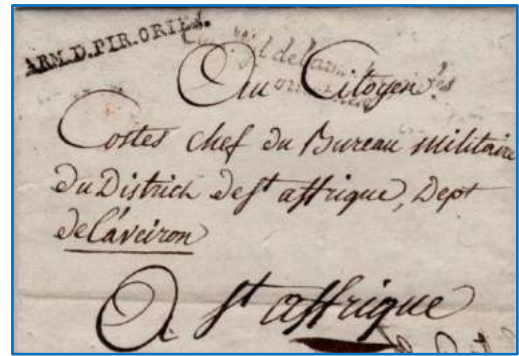 ARM.D.PIR.ORIEN.
Au Citoyen
Costes chef du Bureau militaire
du District de St affrique, Dept
de L'aveiron
A St affrique